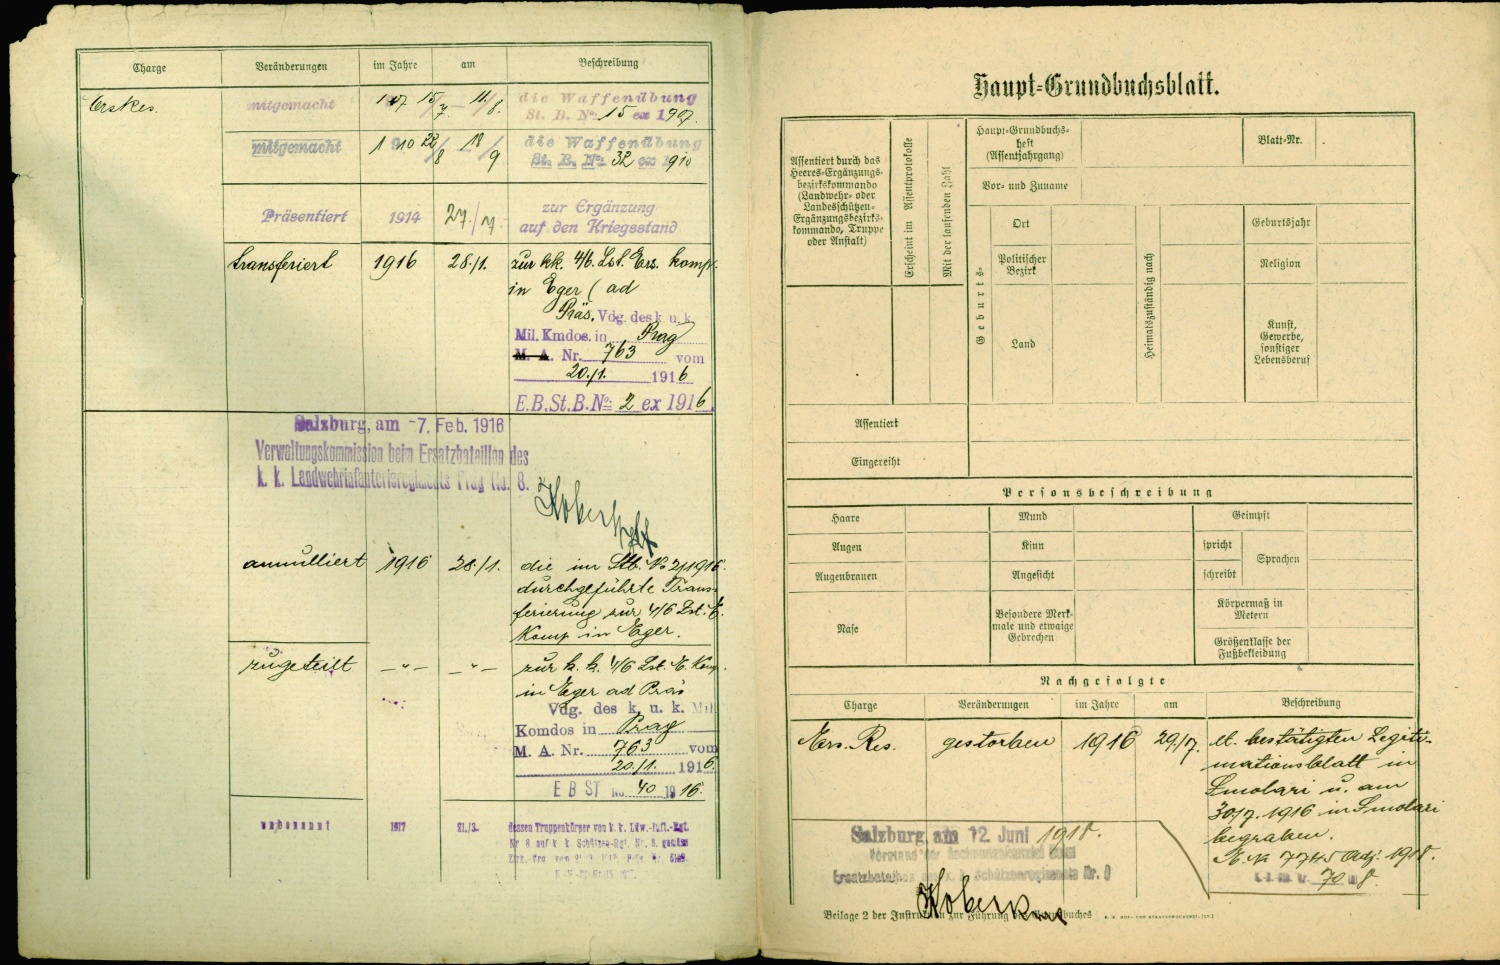 Charge Veränderungen im Jahre am Beschreibung
Ersres. mitgemacht 1907 15/7 — 11./8. die Waffenübung
St. B. No: 15 ex 1907.
mitgemacht 1910 22/8 — 18/9 die Waffenübung
St. B. No: 32 ex 1910
Präsentiert 1914 27./7. zur Ergänzung
auf den Kriegsstand
transferiert 1916 28./1. zur kk. 4/6. Lst. Ers. komp.
in Eger (ad
Präs. Vdg. des k. u. k.
Mil. Kmdos. in Prag
M. A. Nr. 763 vom
20./1. 1916
E.B.St.B.No: 2 ex 1916
Salzburg, am -7. Feb. 1916
Verwaltungskommission beim Ersatzbataillon des
k. k. Landwehrinfanterieregiments Prag No. 8.
annulliert 1916 28./1. die im Stb. No 2/1916
durchgeführte Trans-
ferierung zur 4/6 Lst. E.
Komp in Eger.
zugeteilt —"— —"— zur k. k. 4/6 Lst. E. Komp.
in Eger ad Präs
Vdg. des k. u. k. Mil
Komdos in Prag
M. A. Nr. 763 vom
20./1. 1916.
E B ST No. 40 1916.
1917 21./3. dessen Truppenkörper von k. k. Ldw.-Inft.-Rgt.
Nr 8 auf k. k. Schützen-Rgt. Nr. 8. gemäss
Haupt-Grundbuchsblatt.
Assentiert durch das
Heeres-Ergänzungs-
bezirkskommando
(Landwehr- oder
Landesschützen-
Ergänzungsbezirks-
kommando, Truppe
oder Anstalt)
Erscheint im Assentprotokolle
Mit der laufenden Zahl
Haupt-Grundbuchs-
heft
(Assentjahrgang)
Blatt-Nr.
Vor- und Zuname
Geburts-
Ort
Politischer
Bezirk
Land
Heimatszuständig nach
Geburtsjahr
Religion
Kunst,
Gewerbe,
sonstiger
Lebensberuf
Assentiert
Eingereiht
Personsbeschreibung
Haare Mund Geimpft
Augen Kinn spricht Sprachen
Augenbrauen Angesicht schreibt
Nase
Besondere Merk-
male und etwaige
Gebrechen
Körpermaß in
Metern
Größenklasse der
Fußbekleidung
Nachgefolgte
Charge Veränderungen im Jahre am Beschreibung
Ers. Res. gestorben 1916 29./7. lt. bestätigten Legiti-
mationsblatt in
Smolari u. am
30/7. 1916 in Smolari
begraben.
7745 Adj. 1918.
70
Salzburg, am 12. Juni 1918.
Ersatzbataillon des k. k. Schützenregiments Nr. 8
Beilage 2 der Instruktion zur Führung des Grundbuches